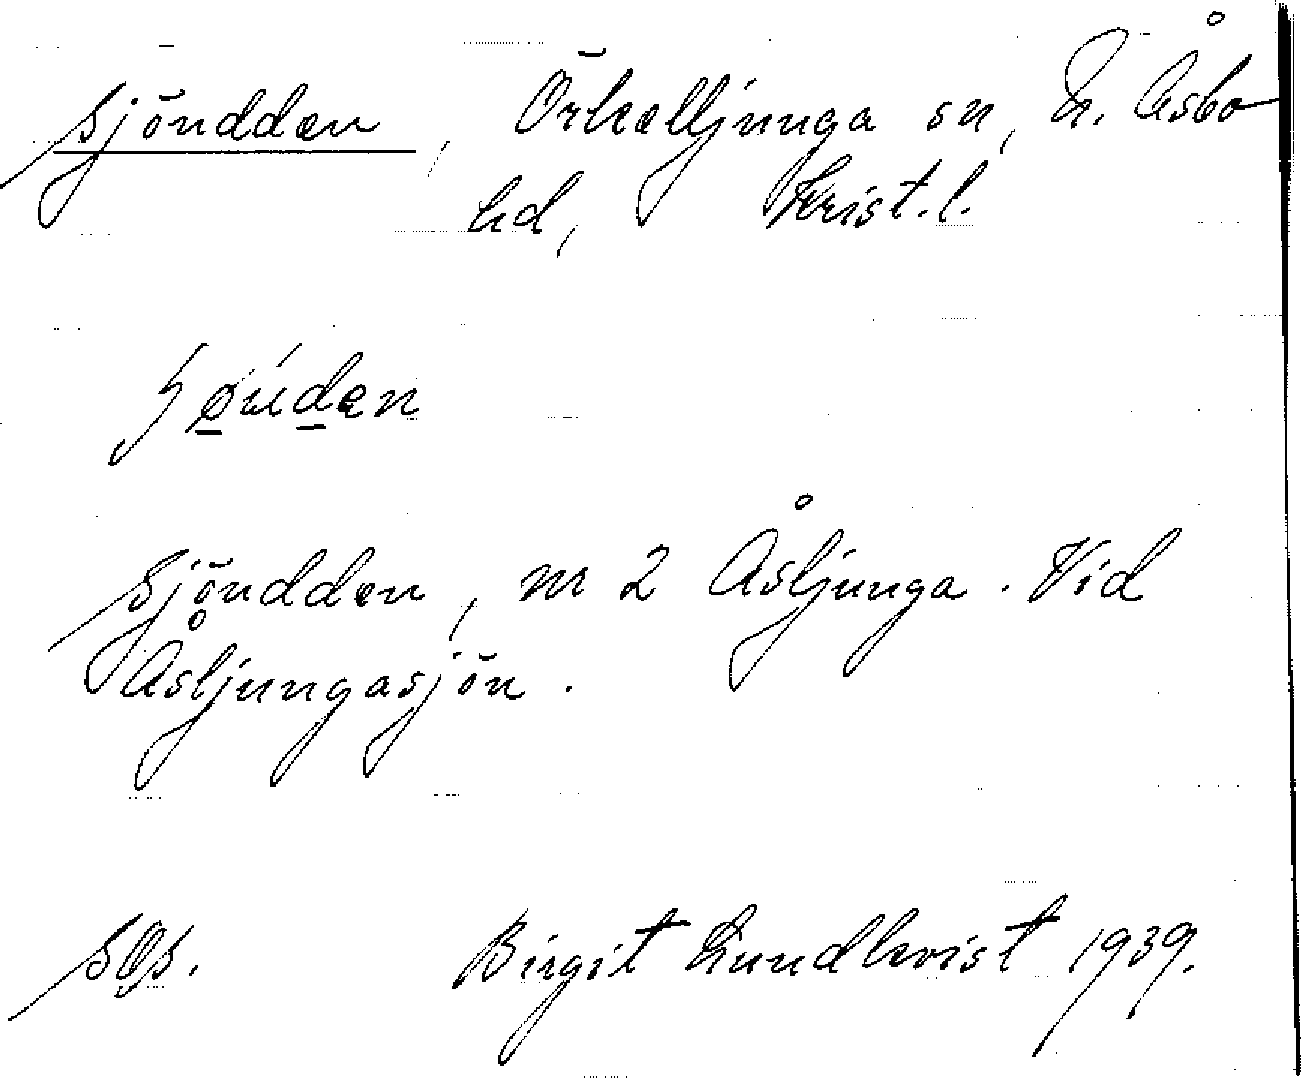 Sjöudden, Örkelljunga sn, N. Åsbo
hd, Krist. l.
Sjöudden, nr 2 Åsljunga. Vid
Åsljungasjön.
Birgit Lundkvist 1939.